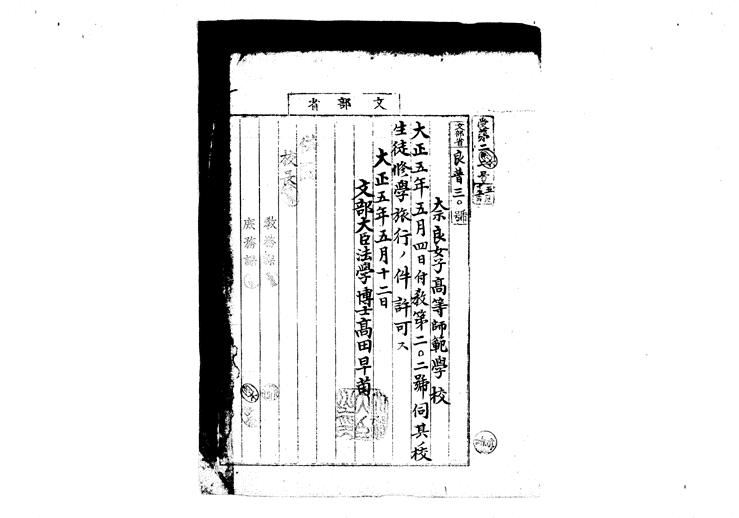 文部省
文部省 良普三〇號
奈良女子高等師範學校
大正五年五月四日付教第二〇二號伺其校
生徒修學旅行ノ件許可ス
大正五年五月十二日
文部大臣法學博士高田早苗
校長
教務課
庶務課